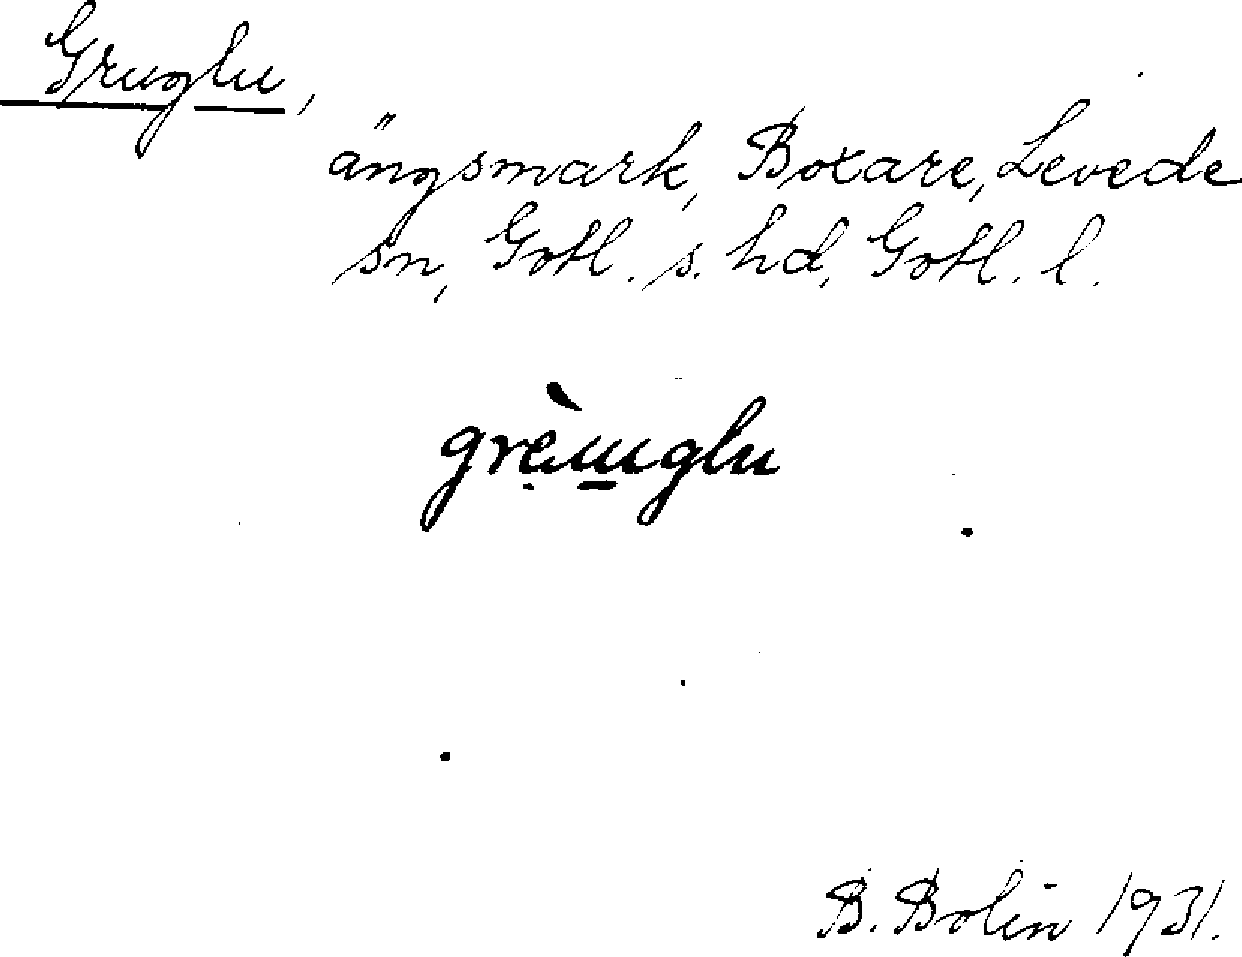 Gruglu,
ängsmark, Botare, Levede
sn, Gotl. s. hd, Gotl. l.
grèu̱glu
B. Bolin 1931.